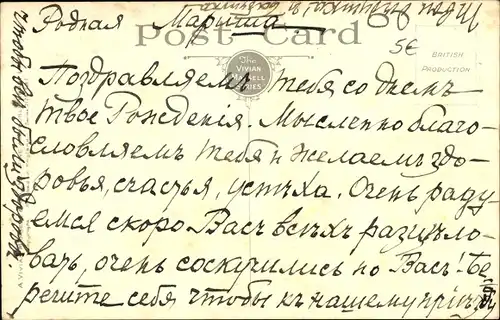 Родная Мариша
Post Card
The
VIVIAN
MANSELL
SERIES
5E
BRITISH
PRODUCTION
Поздравляемъ тебя со днемъ
твое Рожденія. Мысленно благо-
словляемъ тебя и желаемъ здо-
ровья, счастья, успѣха. Очень раду-
емся скоро Васъ всѣхъ разцѣло-
вать, очень соскучились по Васъ! Бе-
регите себя чтобы къ нашему приѣзду
чтобы всѣ были здоровы!